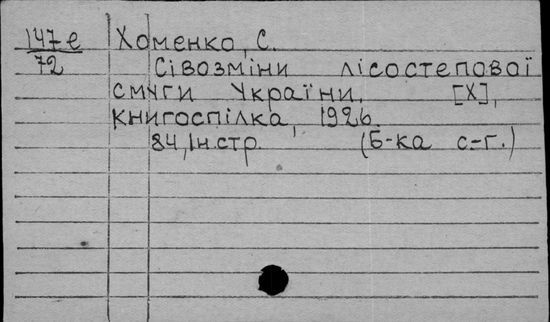 147е Хоменко, С.
72 Сівозміни лісостепової
смуги України. [Х],
книгоспілка, 1926.
84, Ін.стр. (Б-ка с-г.)